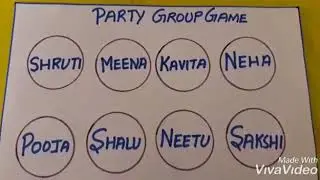 PARTY GROUP GAME
SHRUTI MEENA KAVITA NEHA
POOJA SHALU NEETU SAKSHI
Made With
VivaVideo